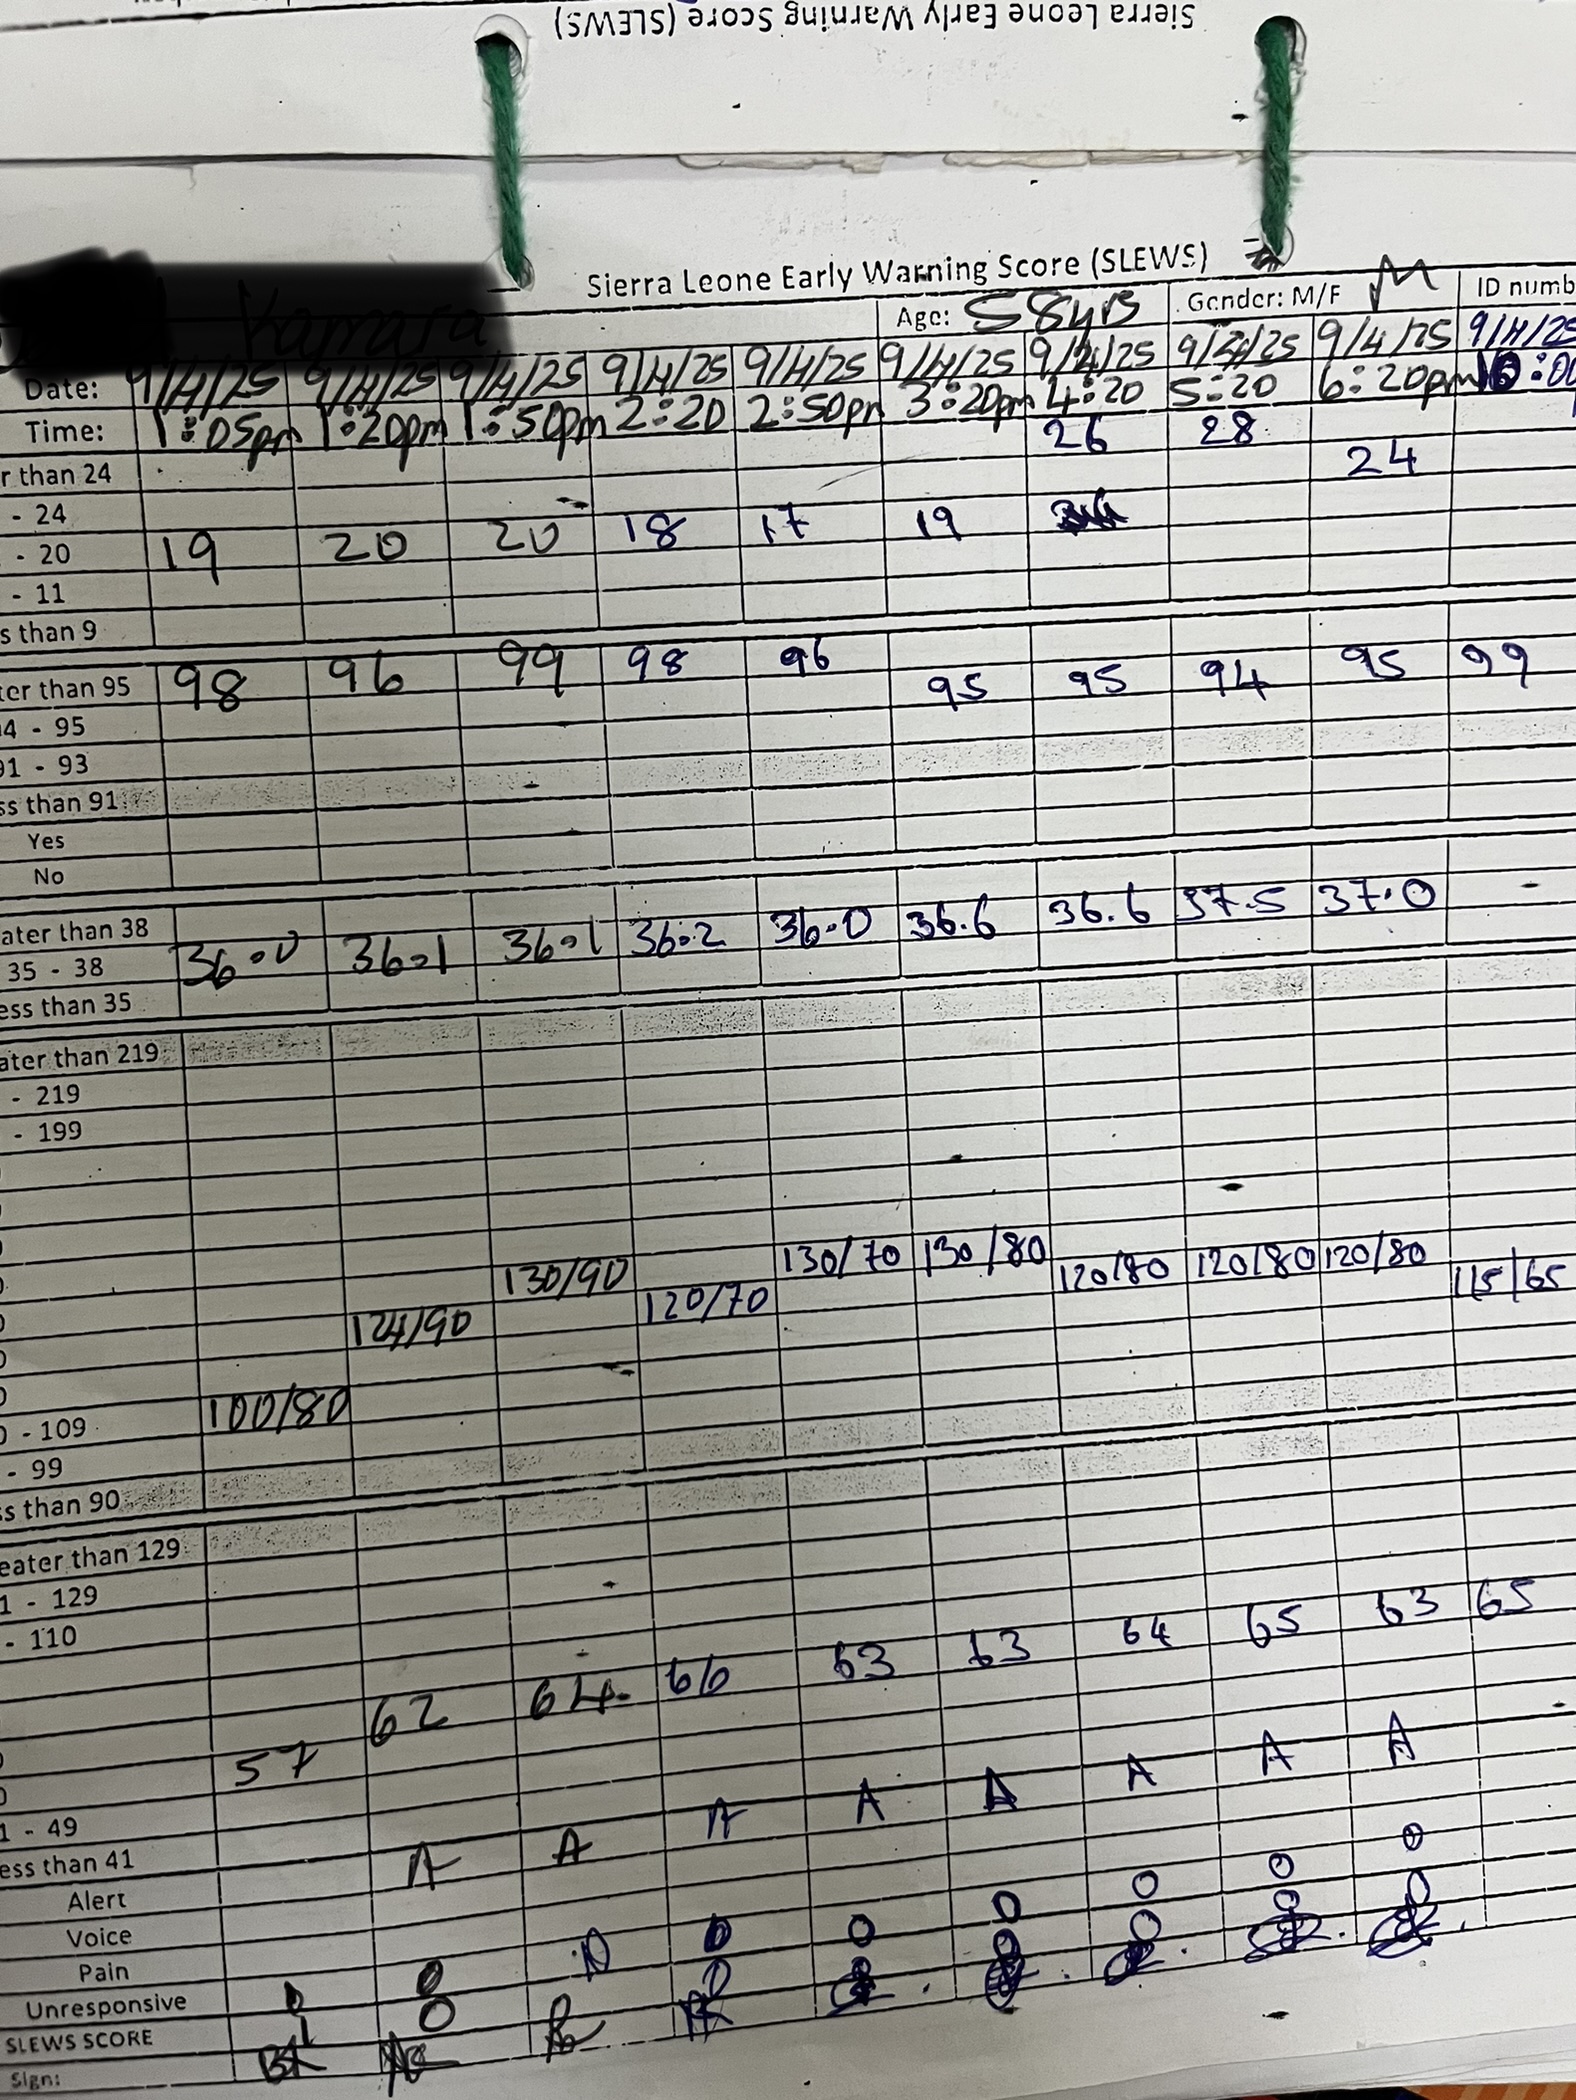 Sierra Leone Early Warning Score (SLEWS)
Sierra Leone Early Warning Score (SLEWS)
Age: 58yrs Gender: M/F M ID numb
Date: 9/4/25 9/4/25 9/4/25 9/4/25 9/4/25 9/4/25 9/4/25 9/4/25 9/4/25 9/4/25
Time: 1:05pm 1:20pm 1:50pm 2:20 2:50pm 3:20pm 4:20 5:20 6:20pm
r than 24 26 28
- 24 24
- 20 19 20 20 18 17 19
- 11
s than 9
ter than 95 98 96 99 98 96 95 99
4 - 95 95 95 94
91 - 93
ss than 91
Yes
No
ater than 38
35 - 38 36.0 36.1 36.1 36.2 36.0 36.6 36.6 37.5 37.0
ess than 35
ater than 219
- 219
- 199
130/90 130/70 130/80
124/90 120/70 120/80 120/80 120/80
115/65
0 - 109 100/80
- 99
ss than 90
eater than 129
1 - 129
- 110
62 64 66 63 63 64 65 63 65
57
1 - 49
ess than 41
Alert A A A A A A A A
Voice
Pain
Unresponsive
SLEWS SCORE 0 0 0 0 0 0 0 0
Sign: